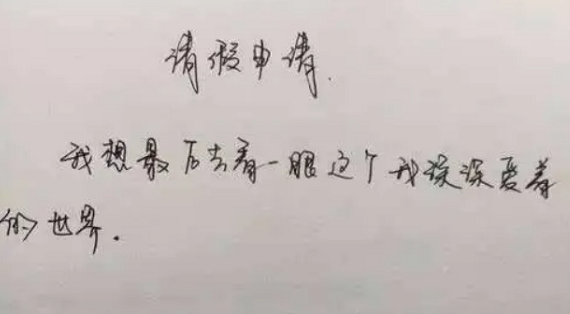 请假申请.
我想最后去看一眼这个我深深爱着
的世界.